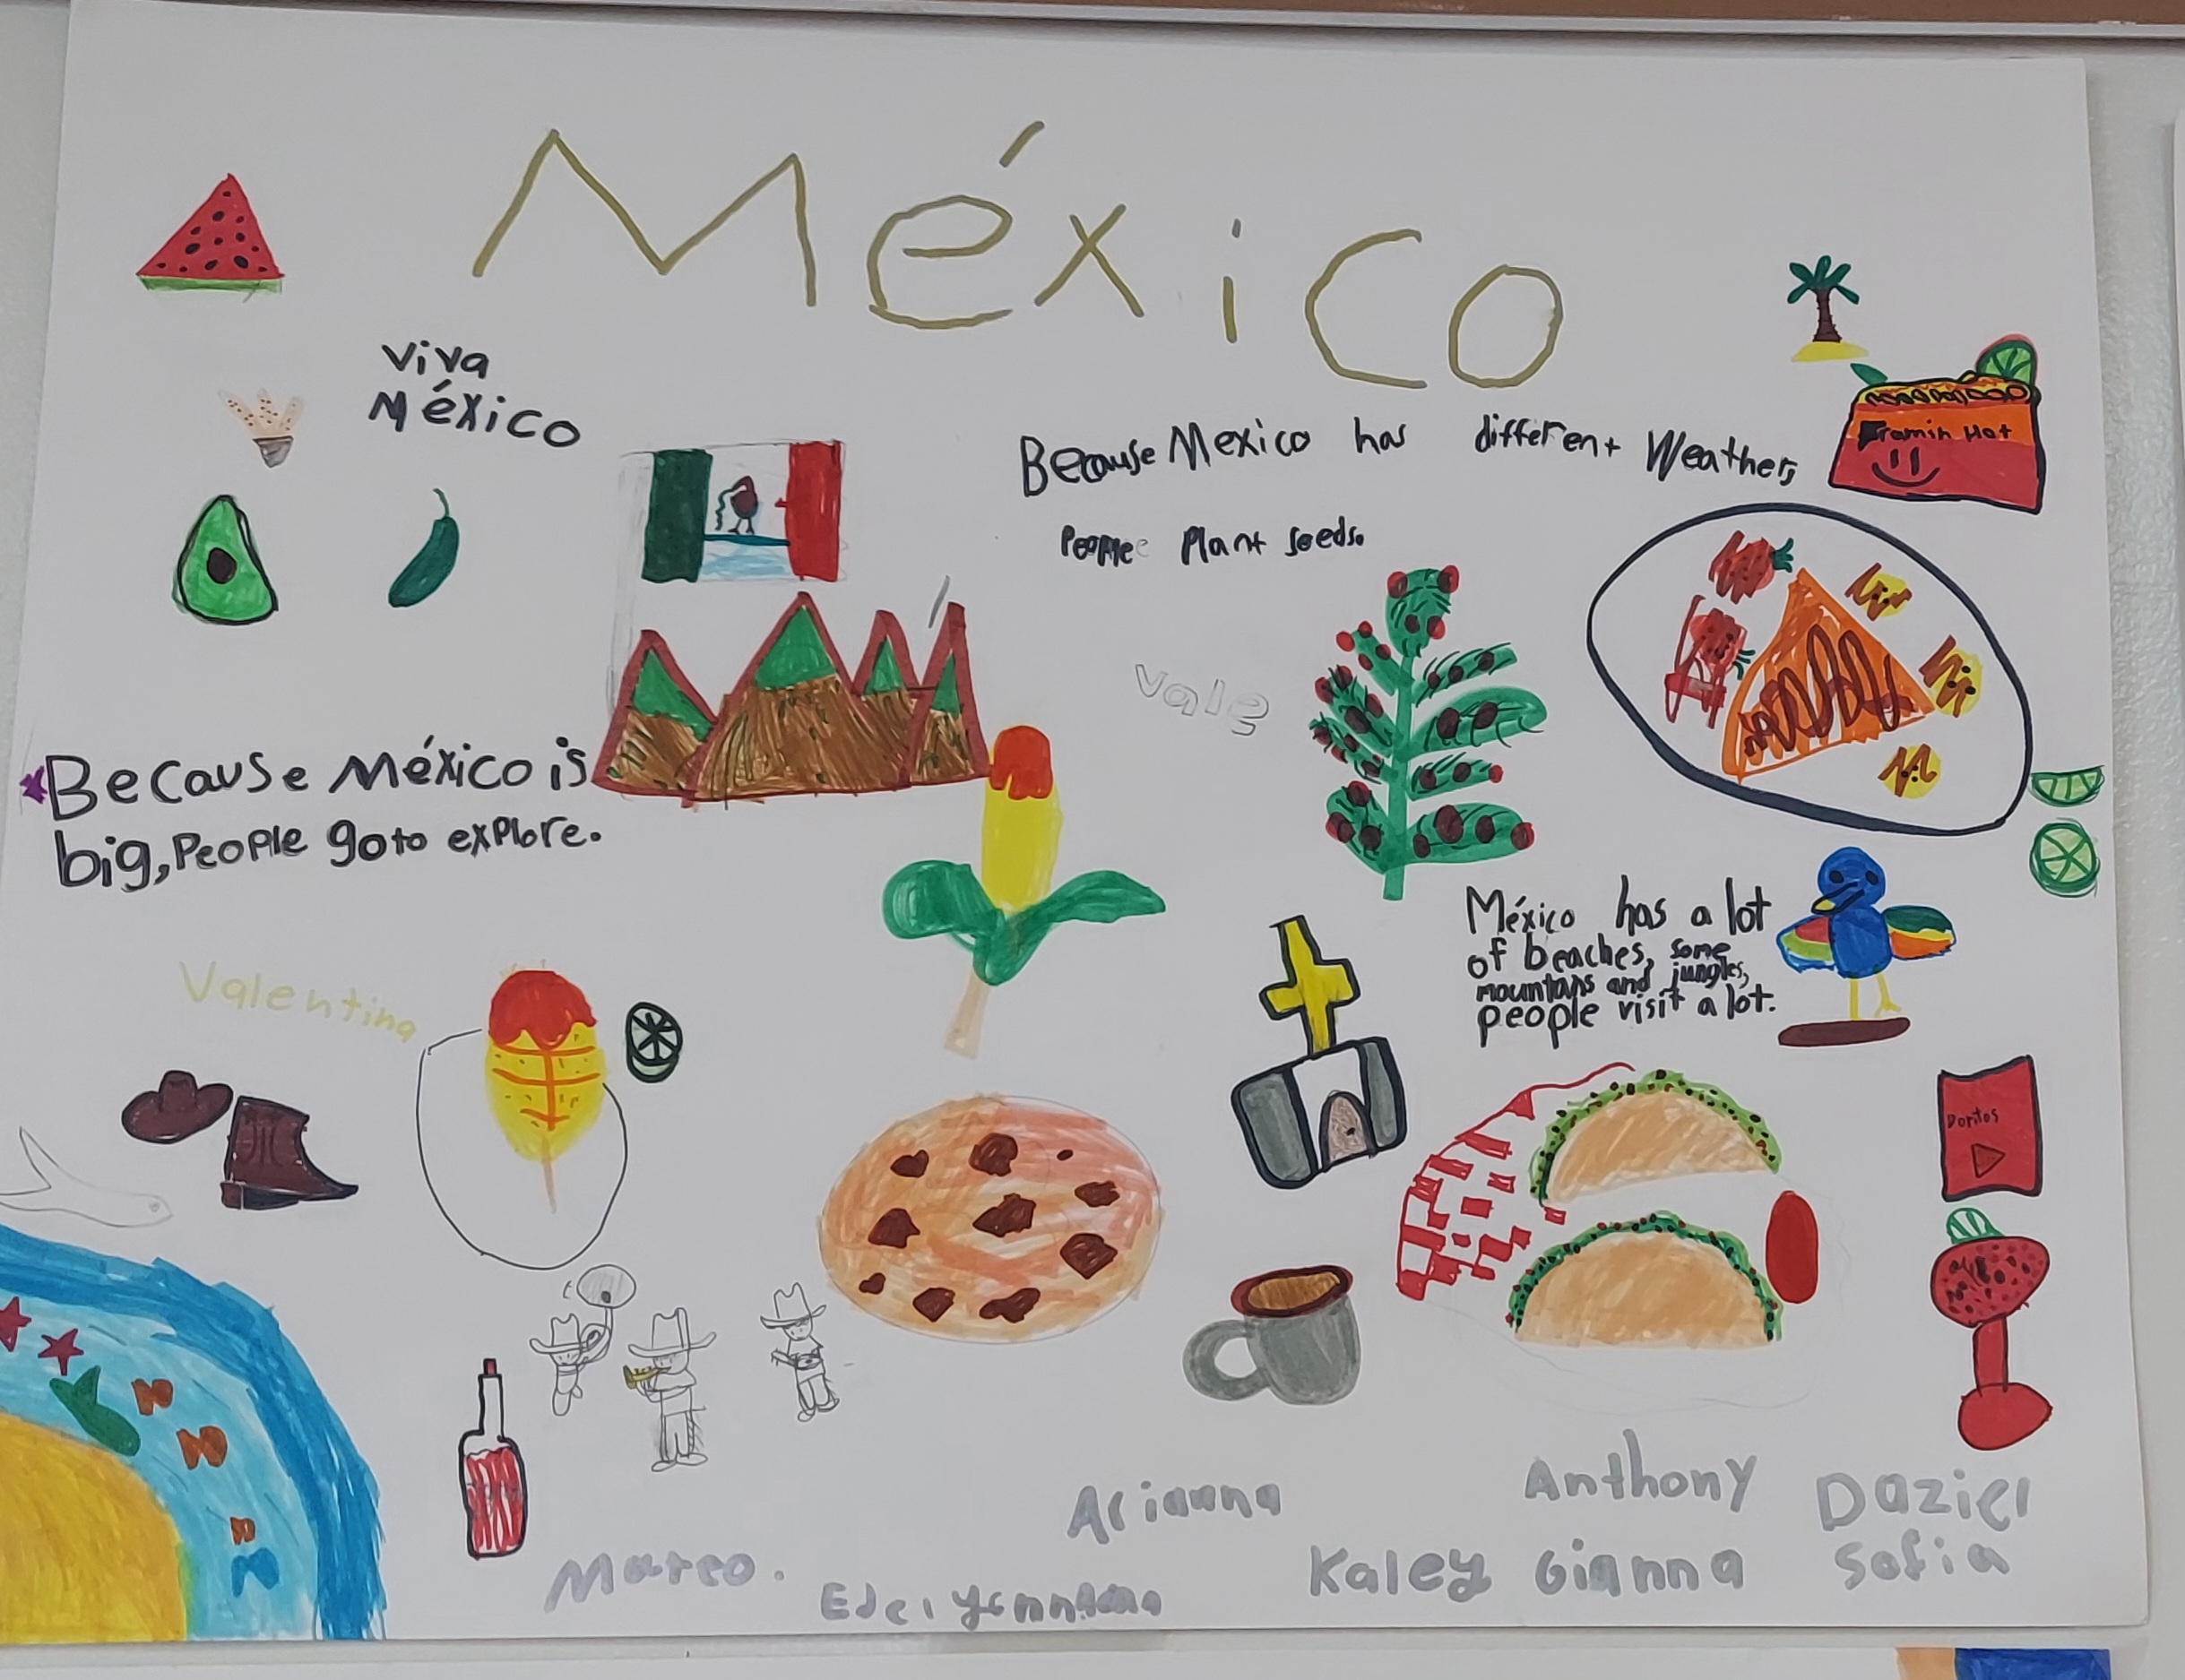 México
Viva
México
Because Mexico has different Weathers
People Plant seeds.
Framin Hot
Vale
Because México is
big, People go to explore.
México has a lot
of beaches, some
mountans and jungles,
people visit a lot.
Valentina
Doritos
Arianna
Anthony
Daziel
Mateo.
Kaley Gianna
Sofia